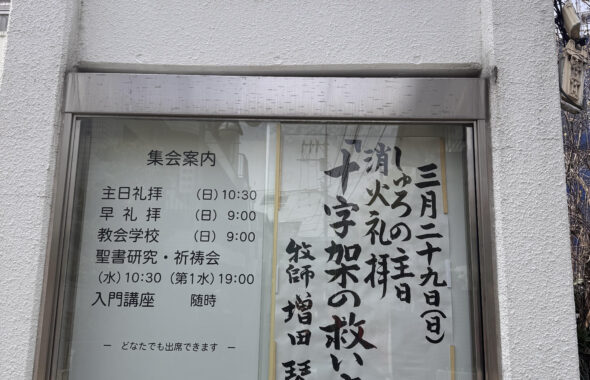 集会案内
主日礼拝 (日) 10:30
早礼拝 (日) 9:00
教会学校 (日) 9:00
聖書研究・祈祷会
(水) 10:30 (第1水) 19:00
入門講座 随時
― どなたでも出席できます ―
三月二十九日(日)
しゅろの主日
消火礼拝
「十字架の救い
牧師 増田 琴